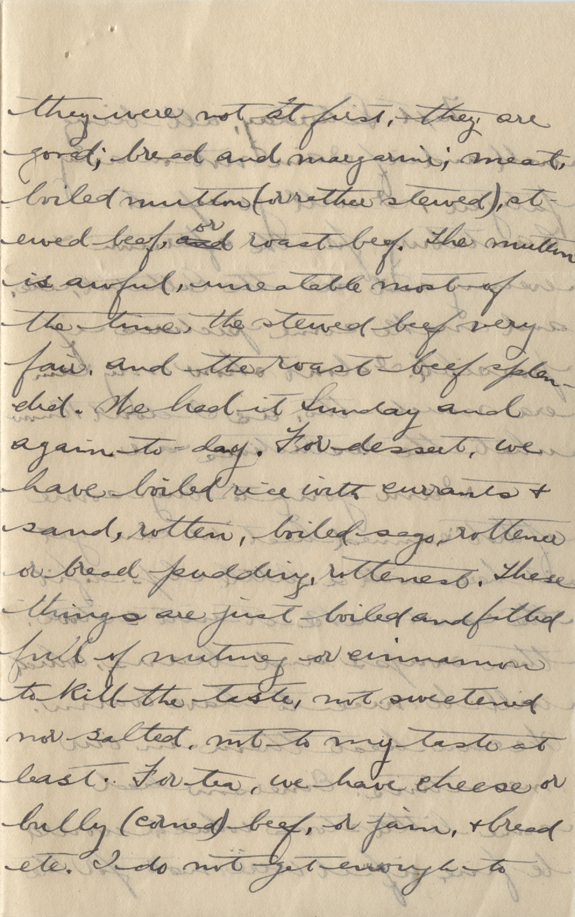 they were not at first, they are
good; bread and margarine; meat,
boiled mutton (or rather stewed), st-
ewed beef, and or roast beef. The mutton
is awful, uneatable most of
the time, the stewed beef very
fair, and the roast beef splen-
did. We had it Sunday and
again to-day. For dessert, we
have boiled rice with currants &
sand, rotten, boiled sago, rottener
or bread pudding, rottenest. These
things are just boiled and filled
full of nutmeg or cinnamon
to kill the taste, not sweetened
nor salted, not to my taste at
least. For tea, we have cheese or
bully (corned) beef, or jam, & bread
etc. I do not get enough to